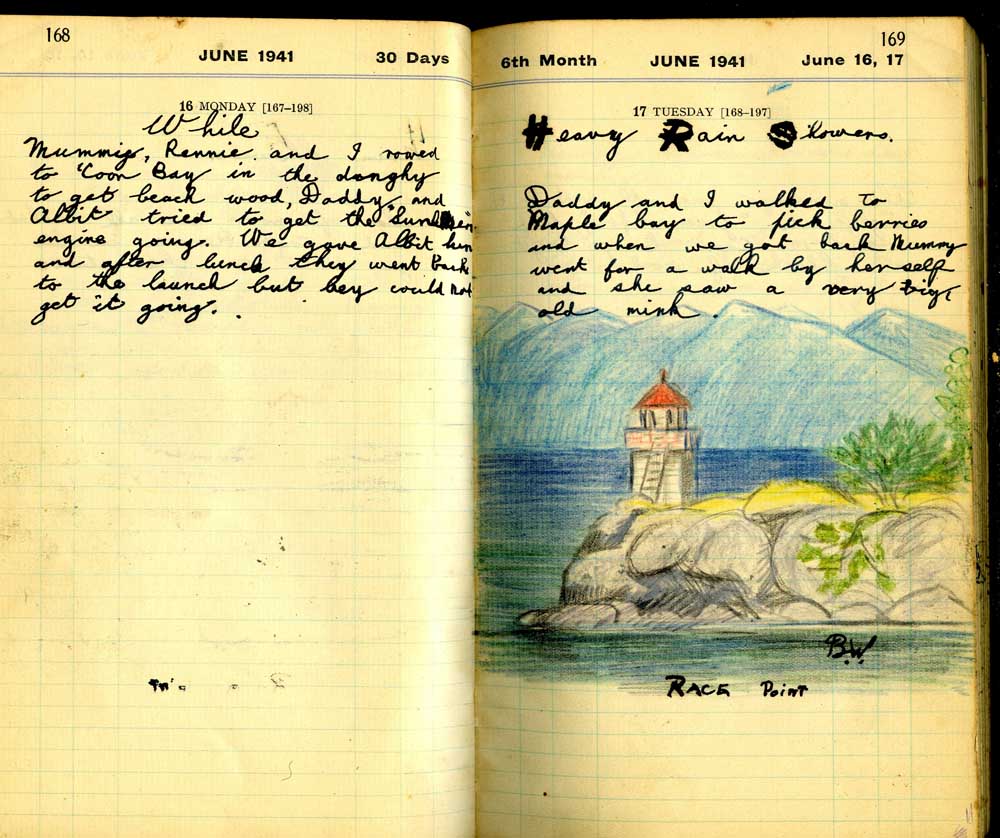 168
JUNE 1941
30 Days
16 MONDAY [167–198]
While
Mummie, Rennie and I rowed
to 'Coon Bay in the donghy
to get beach wood, Daddy and
Albit tried to get the
engine going. We gave Albit
and after lunch they went back
to the launch but bey could not
get it going.
169
6th Month
JUNE 1941
June 16, 17
17 TUESDAY [168–197]
Heavy Rain Showers.
Daddy and I walked to
Maple bay to pick berries
and when we got back Mummy
went for a walk by herself
and she saw a very big
old mink.
B.W.
RACE POINT